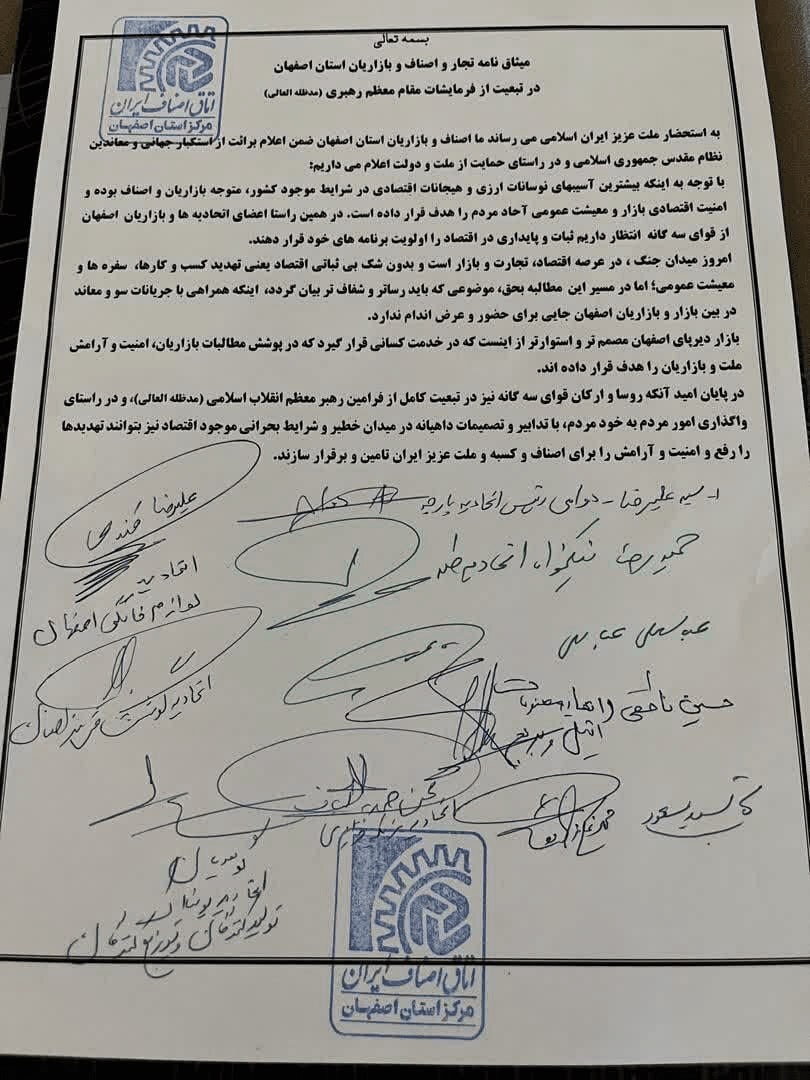 بسمه تعالی
میثاق نامه تجار و اصناف و بازاریان استان اصفهان
در تبعیت از فرمایشات مقام معظم رهبری (مدظله العالی)
اتاق اصناف ایران
مرکز استان اصفهان
به استحضار ملت عزیز ایران اسلامی می رساند ما اصناف و بازاریان استان اصفهان ضمن اعلام برائت از استکبار جهانی و معاندین
نظام مقدس جمهوری اسلامی و در راستای حمایت از ملت و دولت اعلام می داریم:
با توجه به اینکه بیشترین آسیبهای نوسانات ارزی و هیجانات اقتصادی در شرایط موجود کشور، متوجه بازاریان و اصناف بوده و
امنیت اقتصادی بازار و معیشت عمومی آحاد مردم را هدف قرار داده است. در همین راستا اعضای اتحادیه ها و بازاریان اصفهان
از قوای سه گانه انتظار داریم ثبات و پایداری در اقتصاد را اولویت برنامه های خود قرار دهند.
امروز میدان جنگ ، در عرصه اقتصاد، تجارت و بازار است و بدون شک بی ثباتی اقتصاد یعنی تهدید کسب و کارها، سفره ها و
معیشت عمومی؛ اما در مسیر این مطالبه بحق، موضوعی که باید رساتر و شفاف تر بیان گردد، اینکه همراهی با جریانات سو و معاند
در بین بازار و بازاریان اصفهان جایی برای حضور و عرض اندام ندارد.
بازار دیرپای اصفهان مصمم تر و استوارتر از اینست که در خدمت کسانی قرار گیرد که در پوشش مطالبات بازاریان، امنیت و آرامش
ملت و بازاریان را هدف قرار داده اند.
در پایان امید آنکه روسا و ارکان قوای سه گانه نیز در تبعیت کامل از فرامین رهبر معظم انقلاب اسلامی (مدظله العالی)، و در راستای
واگذاری امور مردم به خود مردم، با تدابیر و تصمیمات داهیانه در میدان خطیر و شرایط بحرانی موجود اقتصاد نیز بتوانند تهدیدها
را رفع و امنیت و آرامش را برای اصناف و کسبه و ملت عزیز ایران تامین و برقرار سازند.
رئیس اتحادیه پارچه
علیرضا
حمیدرضا نیکخواه اتحادیه طلا
اتحادیه
لوازم خانگی اصفهان
عباسعلی عباسی
اتحادیه گوشت
حسین
محسن
اتحادیه
سید مسعود
اتحادیه پوشاک
تولیدکنندگان و توزیع کنندگان
اتاق اصناف ایران
مرکز استان اصفهان